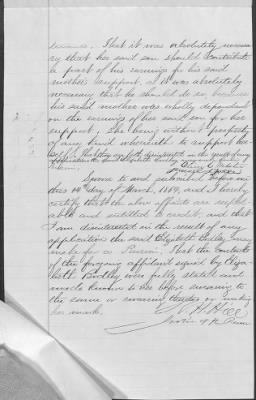 That it was absolutely necess
ary that her said son should contribute
a part of his earnings for his said
mothers support, as it was absolutely
necessary that he should do so, because
his said mother was wholly dependent
on the earnings of her said son for her
support, She being without property
of any kind wherewith to support her
self.
Sworn to and subscribed before me
this 14th day of March, 1889, and I hereby
certify that the above affiants are respect
able and entitled to credit, and that
I am disinterested in the result of any
application the said Elizabeth may
make for a Pension. That the contents
of the foregoing affidavit signed by Eliza
beth were fully stated and
made known to her before swearing to
the same or making
her mark.
Hill
Justice of the Peace